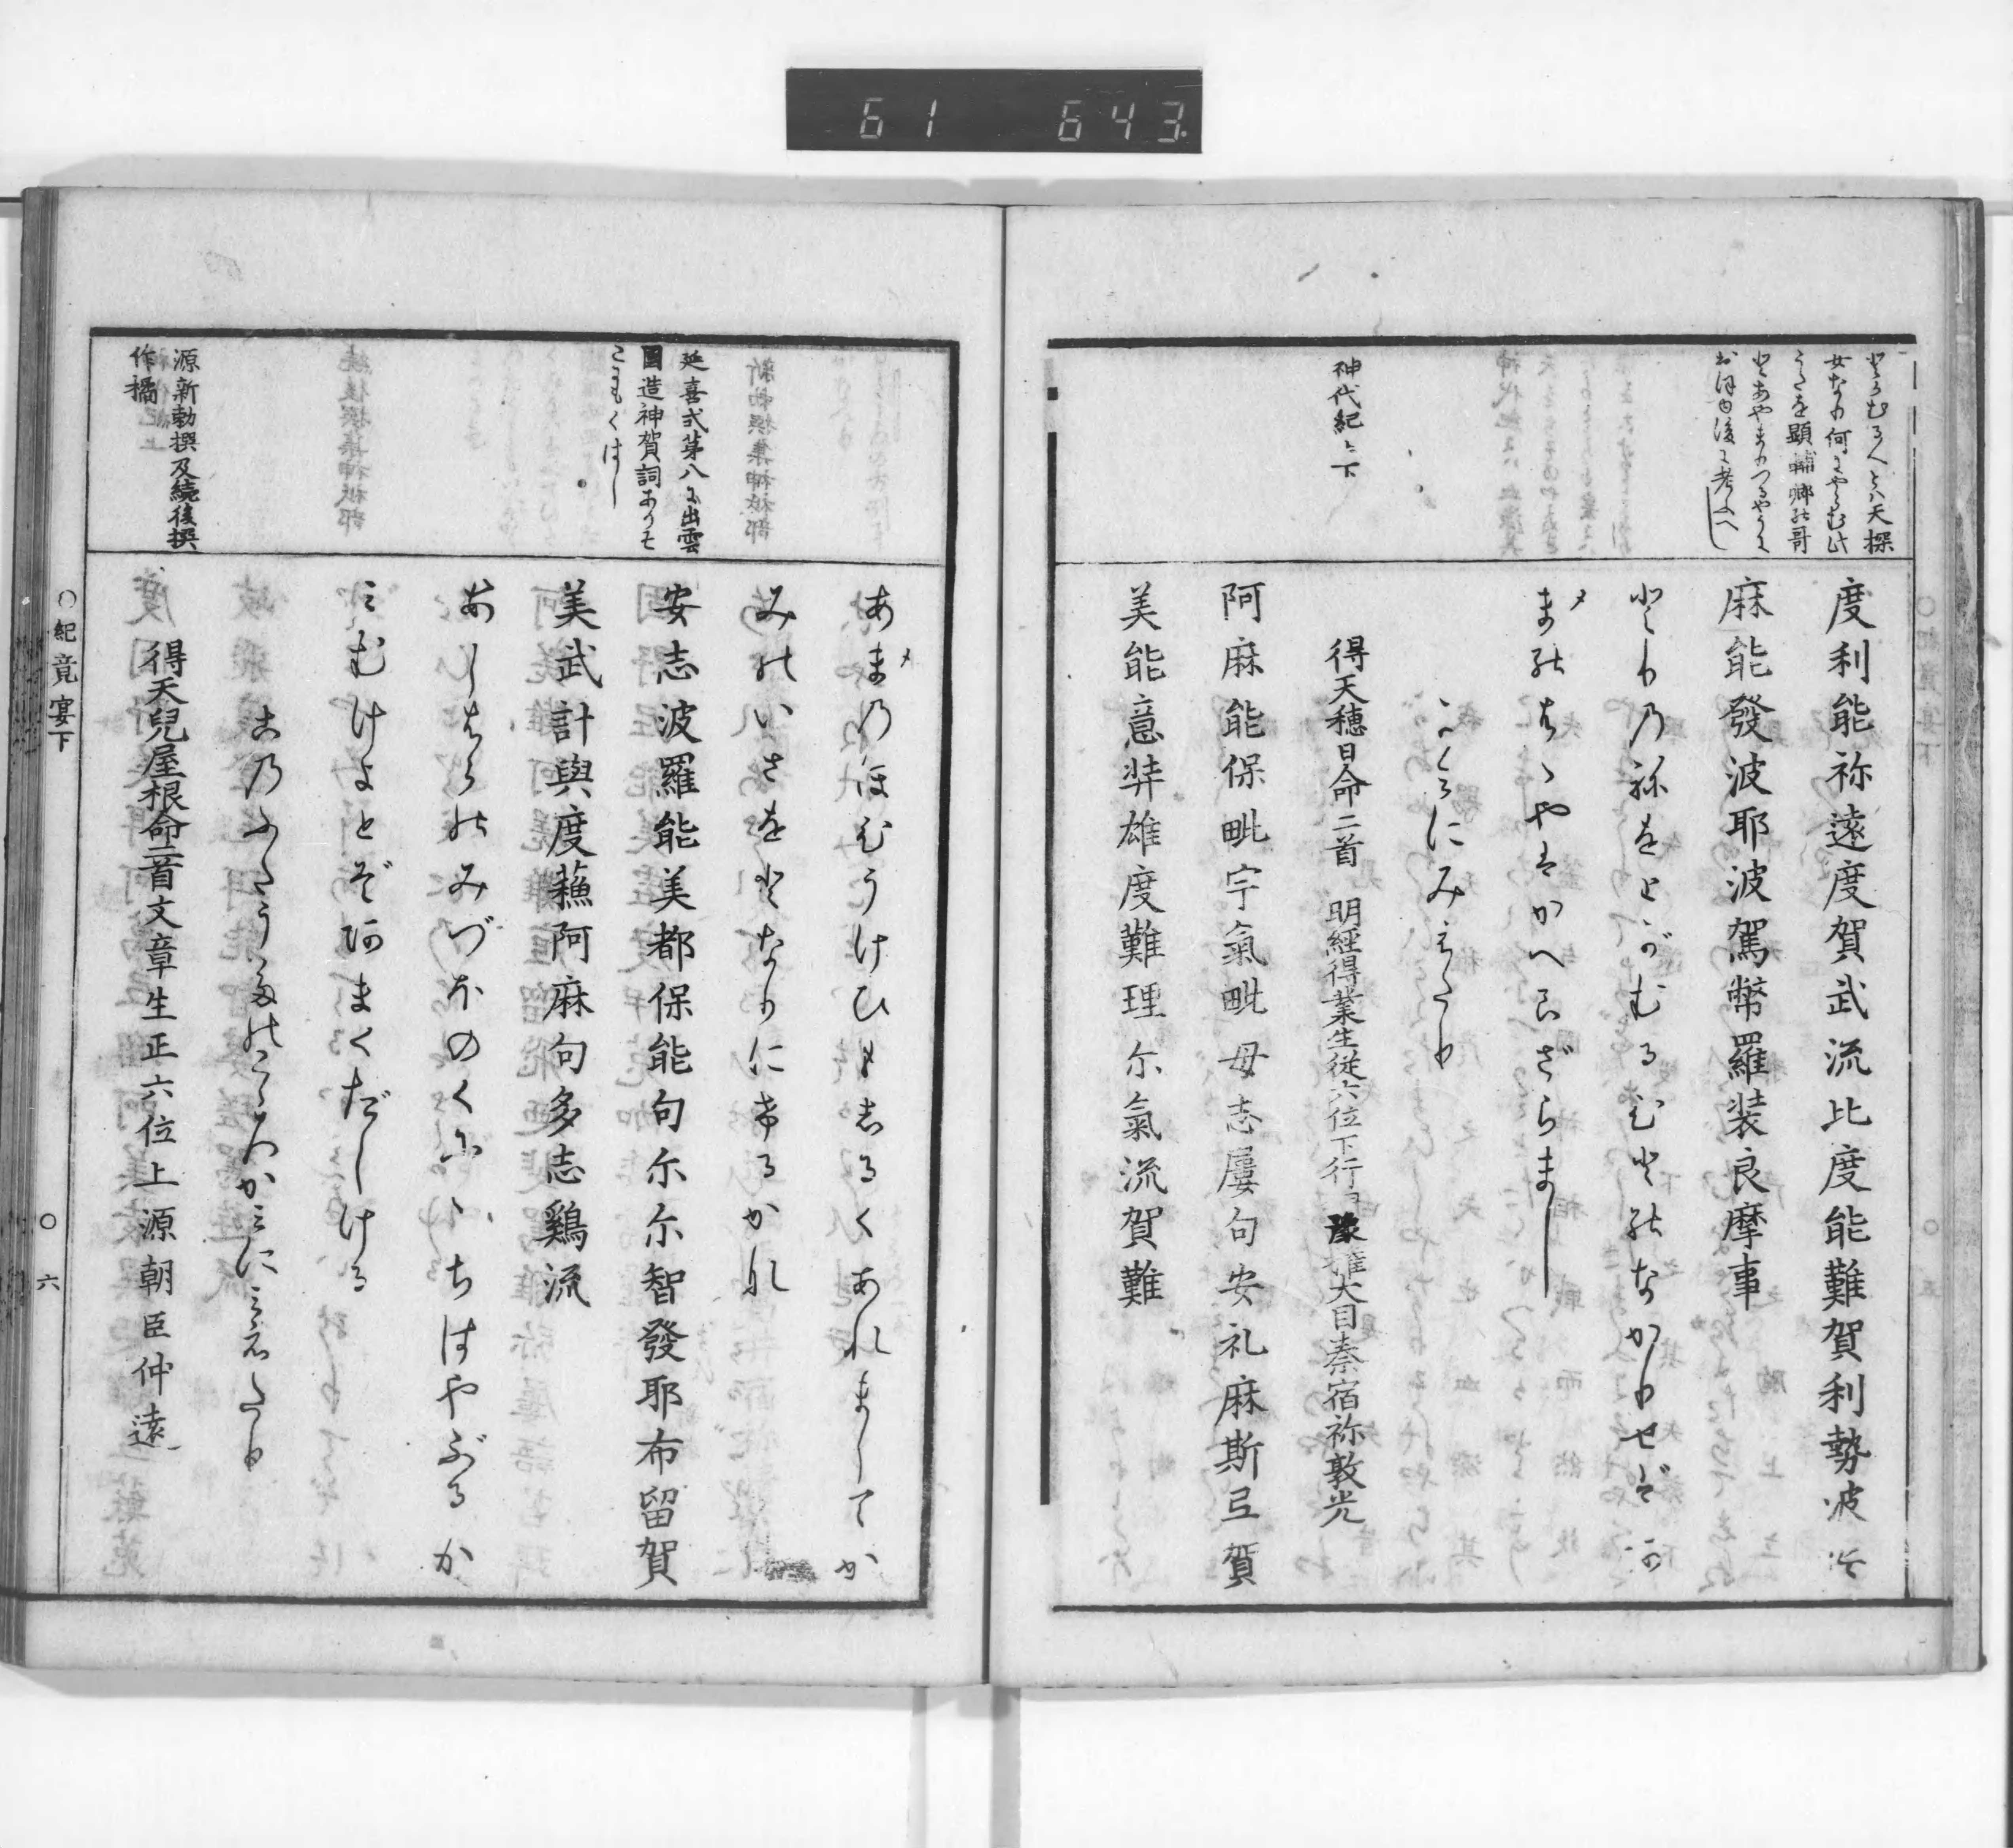 61 643
とがむる人とハ天探
女なり何にやらむ此
うたを顕輔卿の哥
とあやまりつるやうに
おほゆ後に考ふへし
度利能祢遠度賀武流比度能難賀利勢波
麻能發波耶波駕幣羅装良摩事
とりの祢をとがむるひとのなかりせば
まのはゝやはかへらざらまし
にみえたり
神代紀上下
得天穗日命二首 明經得業生従六位下行 豫 大目秦宿祢敦光
阿麻能保毗宇氣毗母志屢句安礼麻斯弖賀
美能意弉雄度難理尓氣流賀難
あまのほひうけひもしるくあれましてか
みのいさをとなりにけるかな
延喜式第八に出雲
國造神賀詞ありそ
こもくはし
安志波羅能美都保能句尓尓智發耶布留賀
美武計與度蘓阿麻句多志鷄流
あしはらのみづほのくにゝちはやぶるか
みむけよとぞあまくだしける
このふたうたのこゝろかみにみえたり
源新勅撰及続後撰
作橘
得天兒屋根命二首文章生正六位上源朝臣仲遠
○紀竟宴下
○六